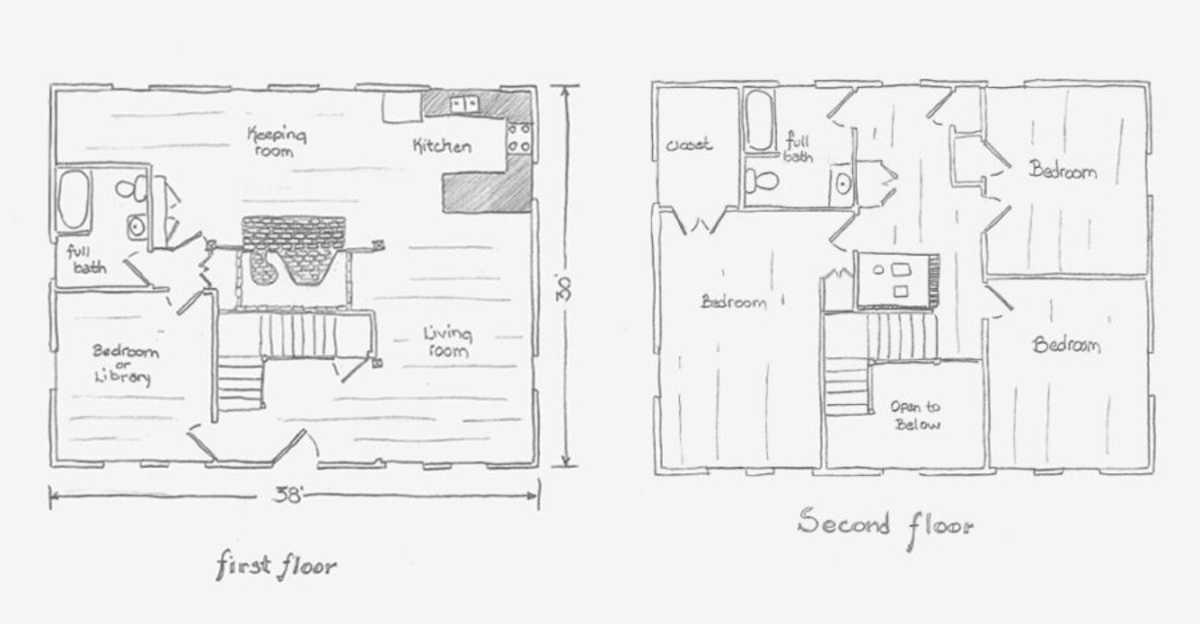 Keeping
room
Kitchen
full
bath
30'
Bedroom
or
Library
Living
room
38'
first floor
closet
full
bath
Bedroom
Bedroom
Bedroom
Open to
Below
Second floor